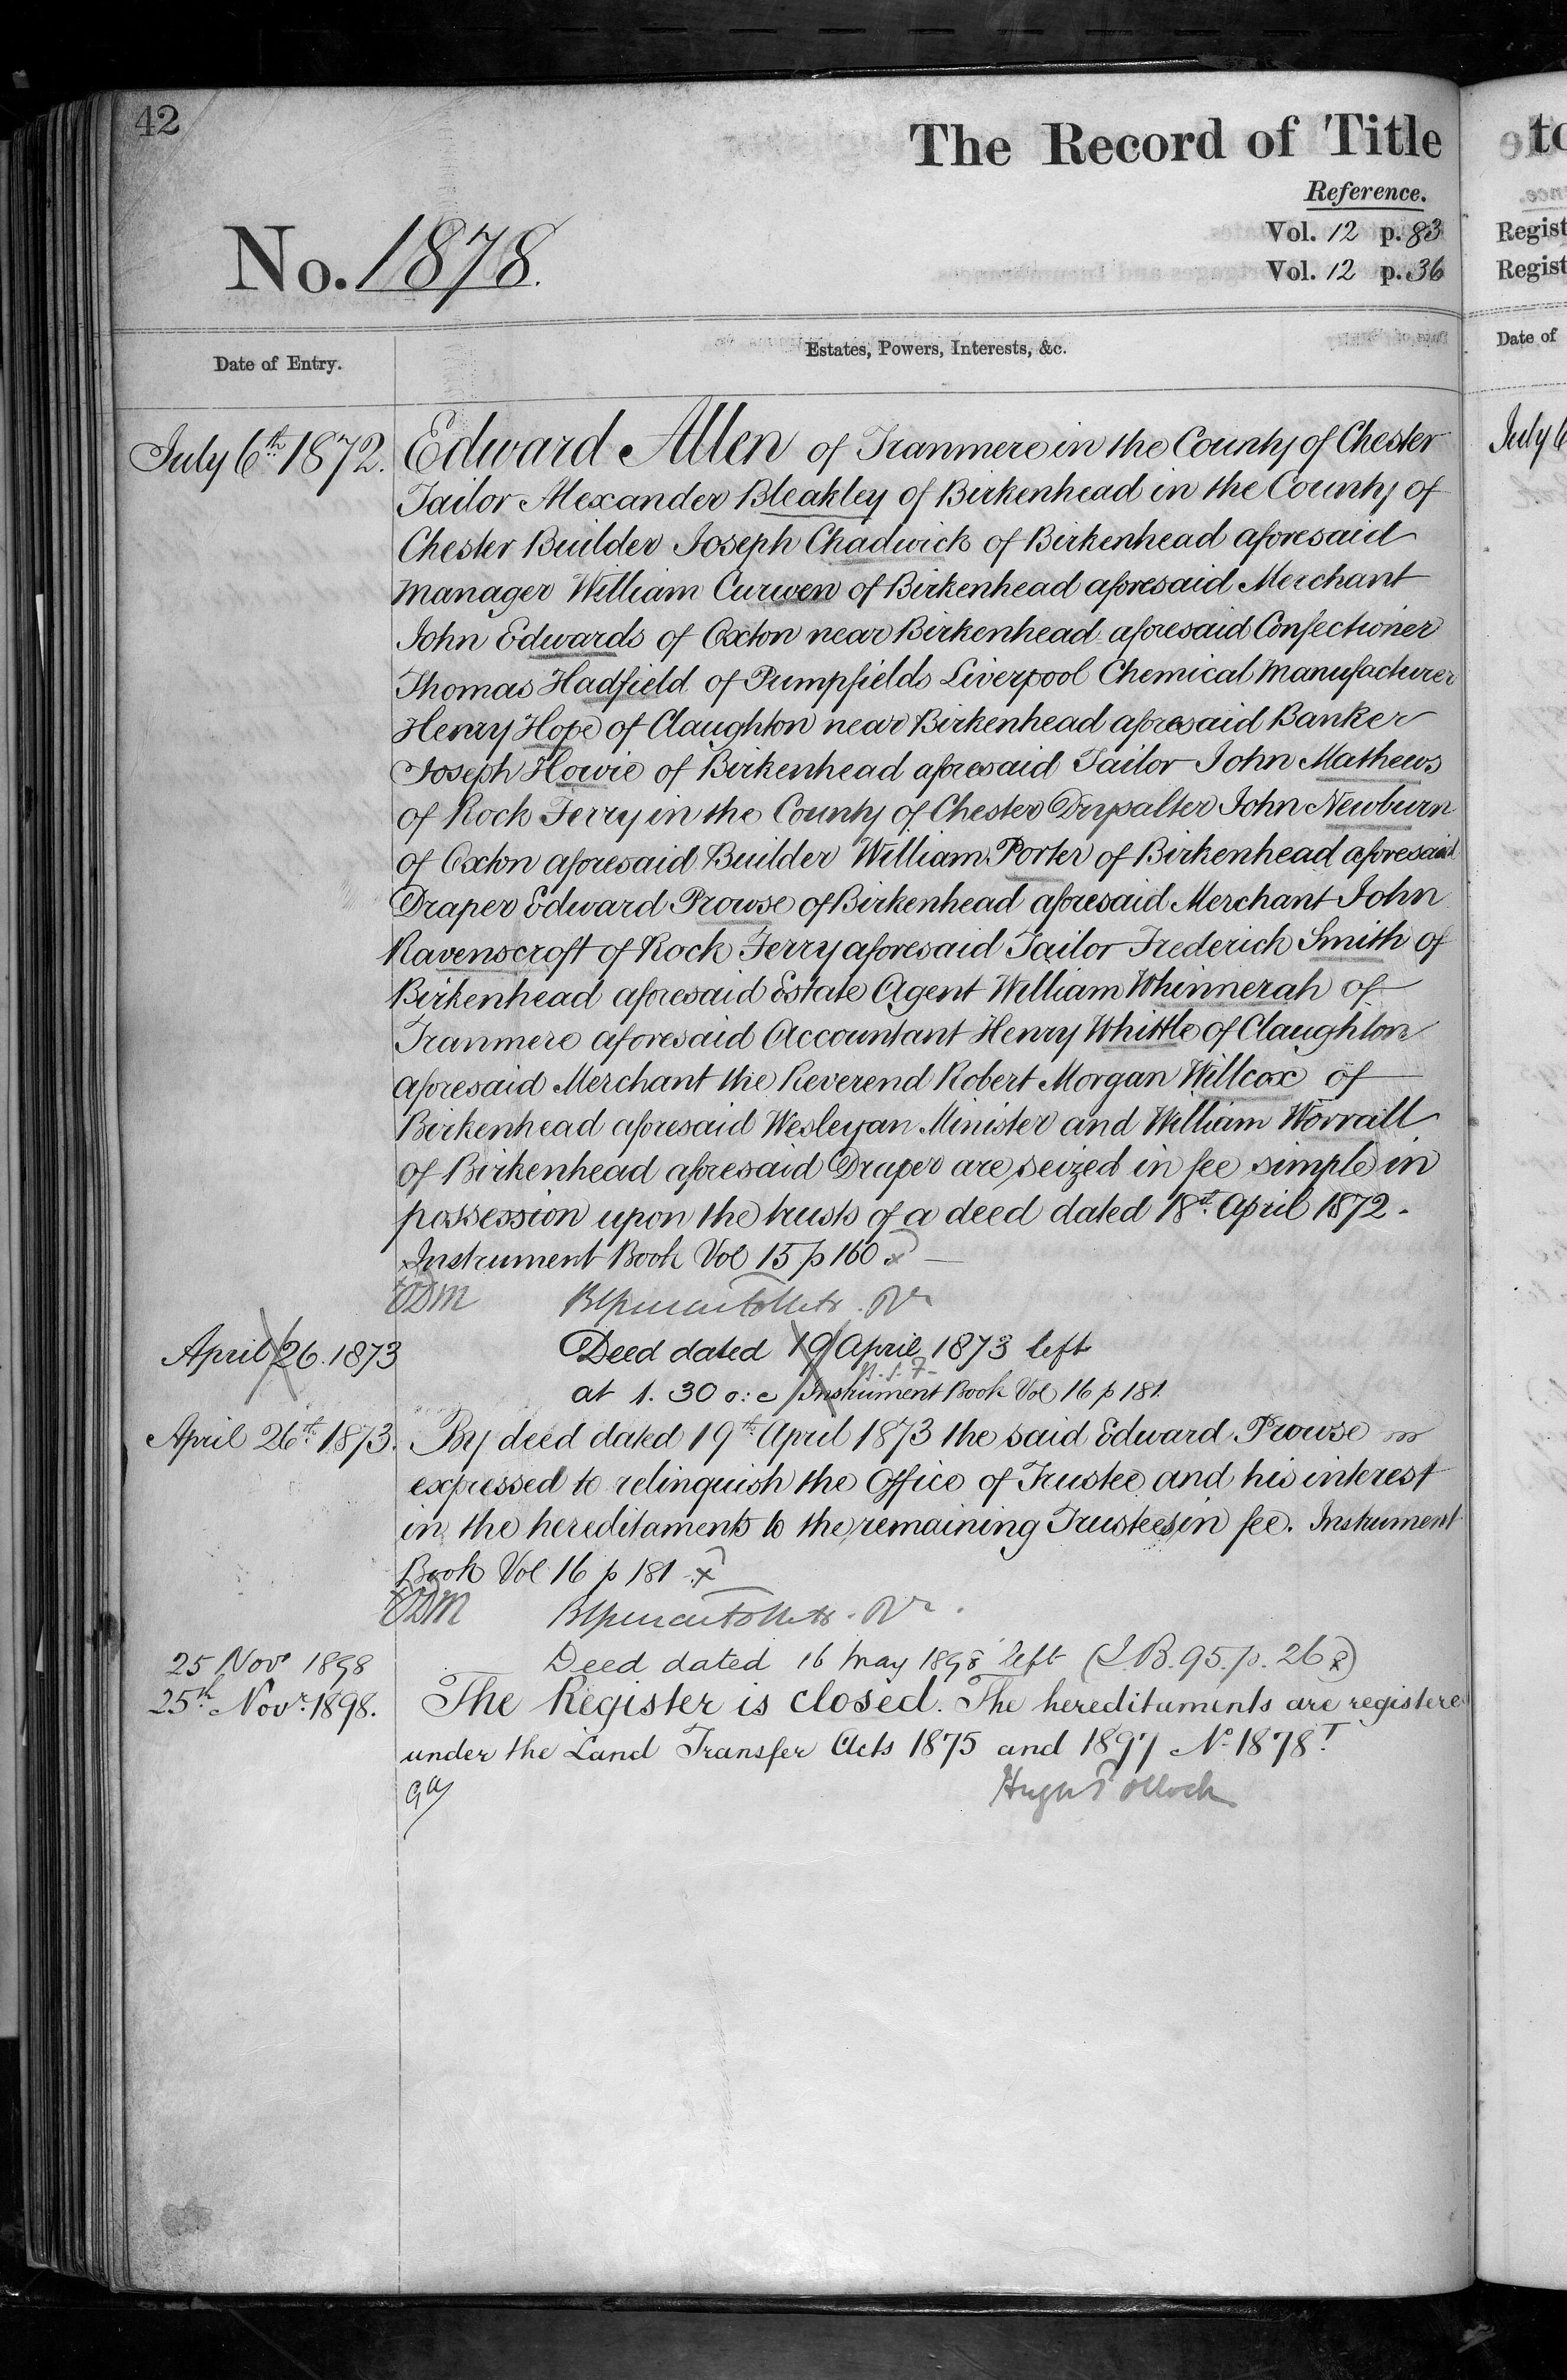 42
The Record of Title
Reference.
No. 1878.
Vol. 12 p. 83
Vol. 12 p. 36
Date of Entry.
Estates, Powers, Interests, &c.
July 6th 1872. Edward Allen of Tranmere in the County of Chester
Tailor Alexander Bleakley of Birkenhead in the County of
Chester Builder Joseph Chadwick of Birkenhead aforesaid
Manager William Curwen of Birkenhead aforesaid Merchant
John Edwards of Oxton near Birkenhead aforesaid Confectioner
Thomas Hadfield of Pumpfields Liverpool Chemical Manufacturer
Henry Hope of Claughton near Birkenhead aforesaid Banker
Joseph Howie of Birkenhead aforesaid Tailor John Mathews
of Rock Ferry in the County of Chester Drysalter John Newburn
of Oxton aforesaid Builder William Porter of Birkenhead aforesaid
Draper Edward Prowse of Birkenhead aforesaid Merchant John
Ravenscroft of Rock Ferry aforesaid Tailor Frederick Smith of
Birkenhead aforesaid Estate Agent William Whinnerah of
Tranmere aforesaid Accountant Henry Whittle of Claughton
aforesaid Merchant the Reverend Robert Morgan Willcox of
Birkenhead aforesaid Wesleyan Minister and William Worrall
of Birkenhead aforesaid Draper are seized in fee simple in
possession upon the trusts of a deed dated 18th April 1872.
Instrument Book Vol 15 p 160
April 26. 1873 Deed dated 19 April 1873 left
at 1. 30 o:c Instrument Book Vol 16 p 181
April 26th 1873. By deed dated 19th April 1873 the said Edward Prowse is
expressed to relinquish the Office of Trustee and his interest
in the hereditaments to the remaining Trustees in fee. Instrument
Book Vol 16 p 181
25 Novr 1898 Deed dated 16 May 1898 left (I.B. 95. p. 26)
25th Novr 1898. The Register is closed. The hereditaments are registered
under the Land Transfer Acts 1875 and 1897 No 1878T
Hugh Pollock
to
Regist
Regist
Date of
July 6